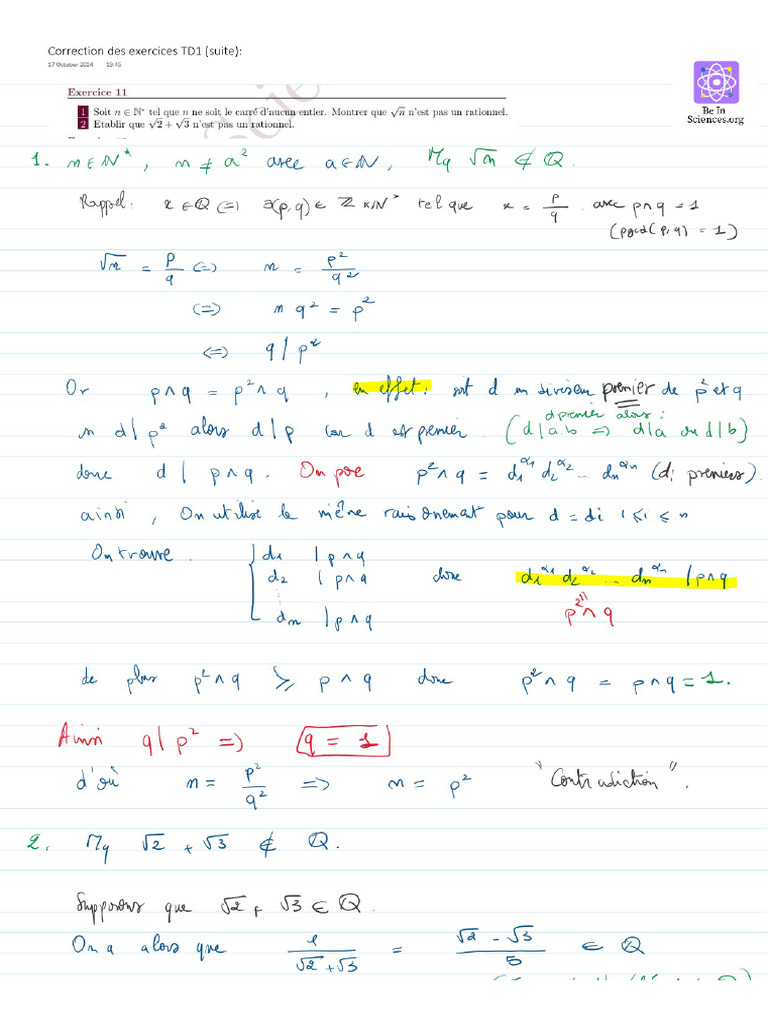 Correction des exercices TD1 (suite):
17 October 2024 19:45
Be In
Sciences.org
Exercice 11
1 Soit n ∈ ℕ* tel que n ne soit le carré d'aucun entier. Montrer que √n n'est pas un rationnel.
2 Etablir que √2 + √3 n'est pas un rationnel.
1. n ∈ ℕ*, n ≠ a² avec a ∈ ℕ, Mq √n ∉ ℚ.
Rappel: x ∈ ℚ (=) ∃(p,q) ∈ ℤ x ℕ* tel que x = p/q. avec p∧q = 1
(pgcd(p,q) = 1)
√n = p/q (=) n = p²/q²
(=) n q² = p²
<=> q | p²
Or p∧q = p²∧q, en effet: soit d un diviseur premier de p² et q
d premier alors:
si d | p² alors d | p car d est premier. (d | a.b => d|a ou d|b)
donc d | p∧q. On pose p²∧q = d₁^α₁ d₂^α₂ ... dₙ^αₙ (di premiers).
ainsi, On utilise le même raisonement pour d = di 1 ≤ i ≤ n
On trouve. { d₁ | p∧q
d₂ | p∧q donc d₁^α₁ d₂^α₂ ... dₙ^αₙ | p∧q
dₙ | p∧q
p²∧q
de plus p²∧q ⩾ p∧q donc p²∧q = p∧q = 1.
Ainsi q | p² =) q = 1
d'où n = p²/q² => n = p² "Contradiction".
2. Mq √2 + √3 ∉ ℚ.
Supposons que √2 + √3 ∈ ℚ.
On a alors que 1/(√2+√3) = (√2 - √3)/5 ∈ ℚ